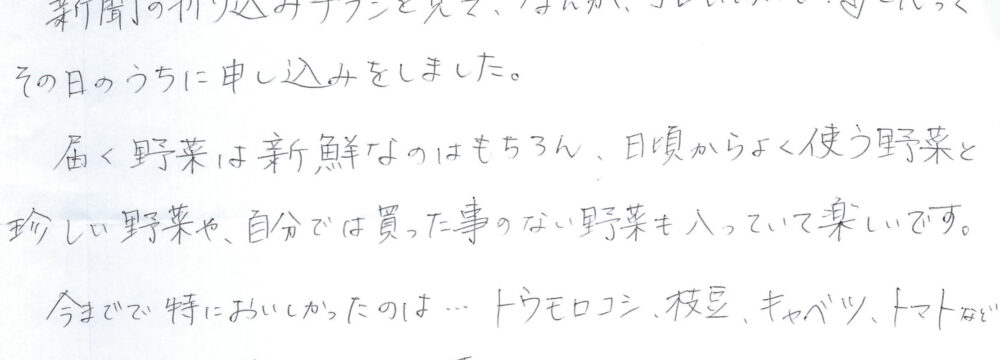 新聞の折り込みチラシを見て、なんか、
その日のうちに申し込みをしました。
届く野菜は新鮮なのはもちろん、日頃からよく使う野菜と
珍しい野菜や、自分では買った事のない野菜も入っていて楽しいです。
今までで特においしかったのは… トウモロコシ、枝豆、キャベツ、トマトなど